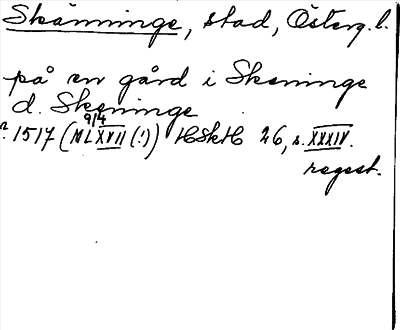 Skänninge, stad, Österg. l.
på en gård i Skeninge
d. Skeninge
9/4
? 1517 (MLXVII (!)) HSkH 26, s. XXXIV.
regest.